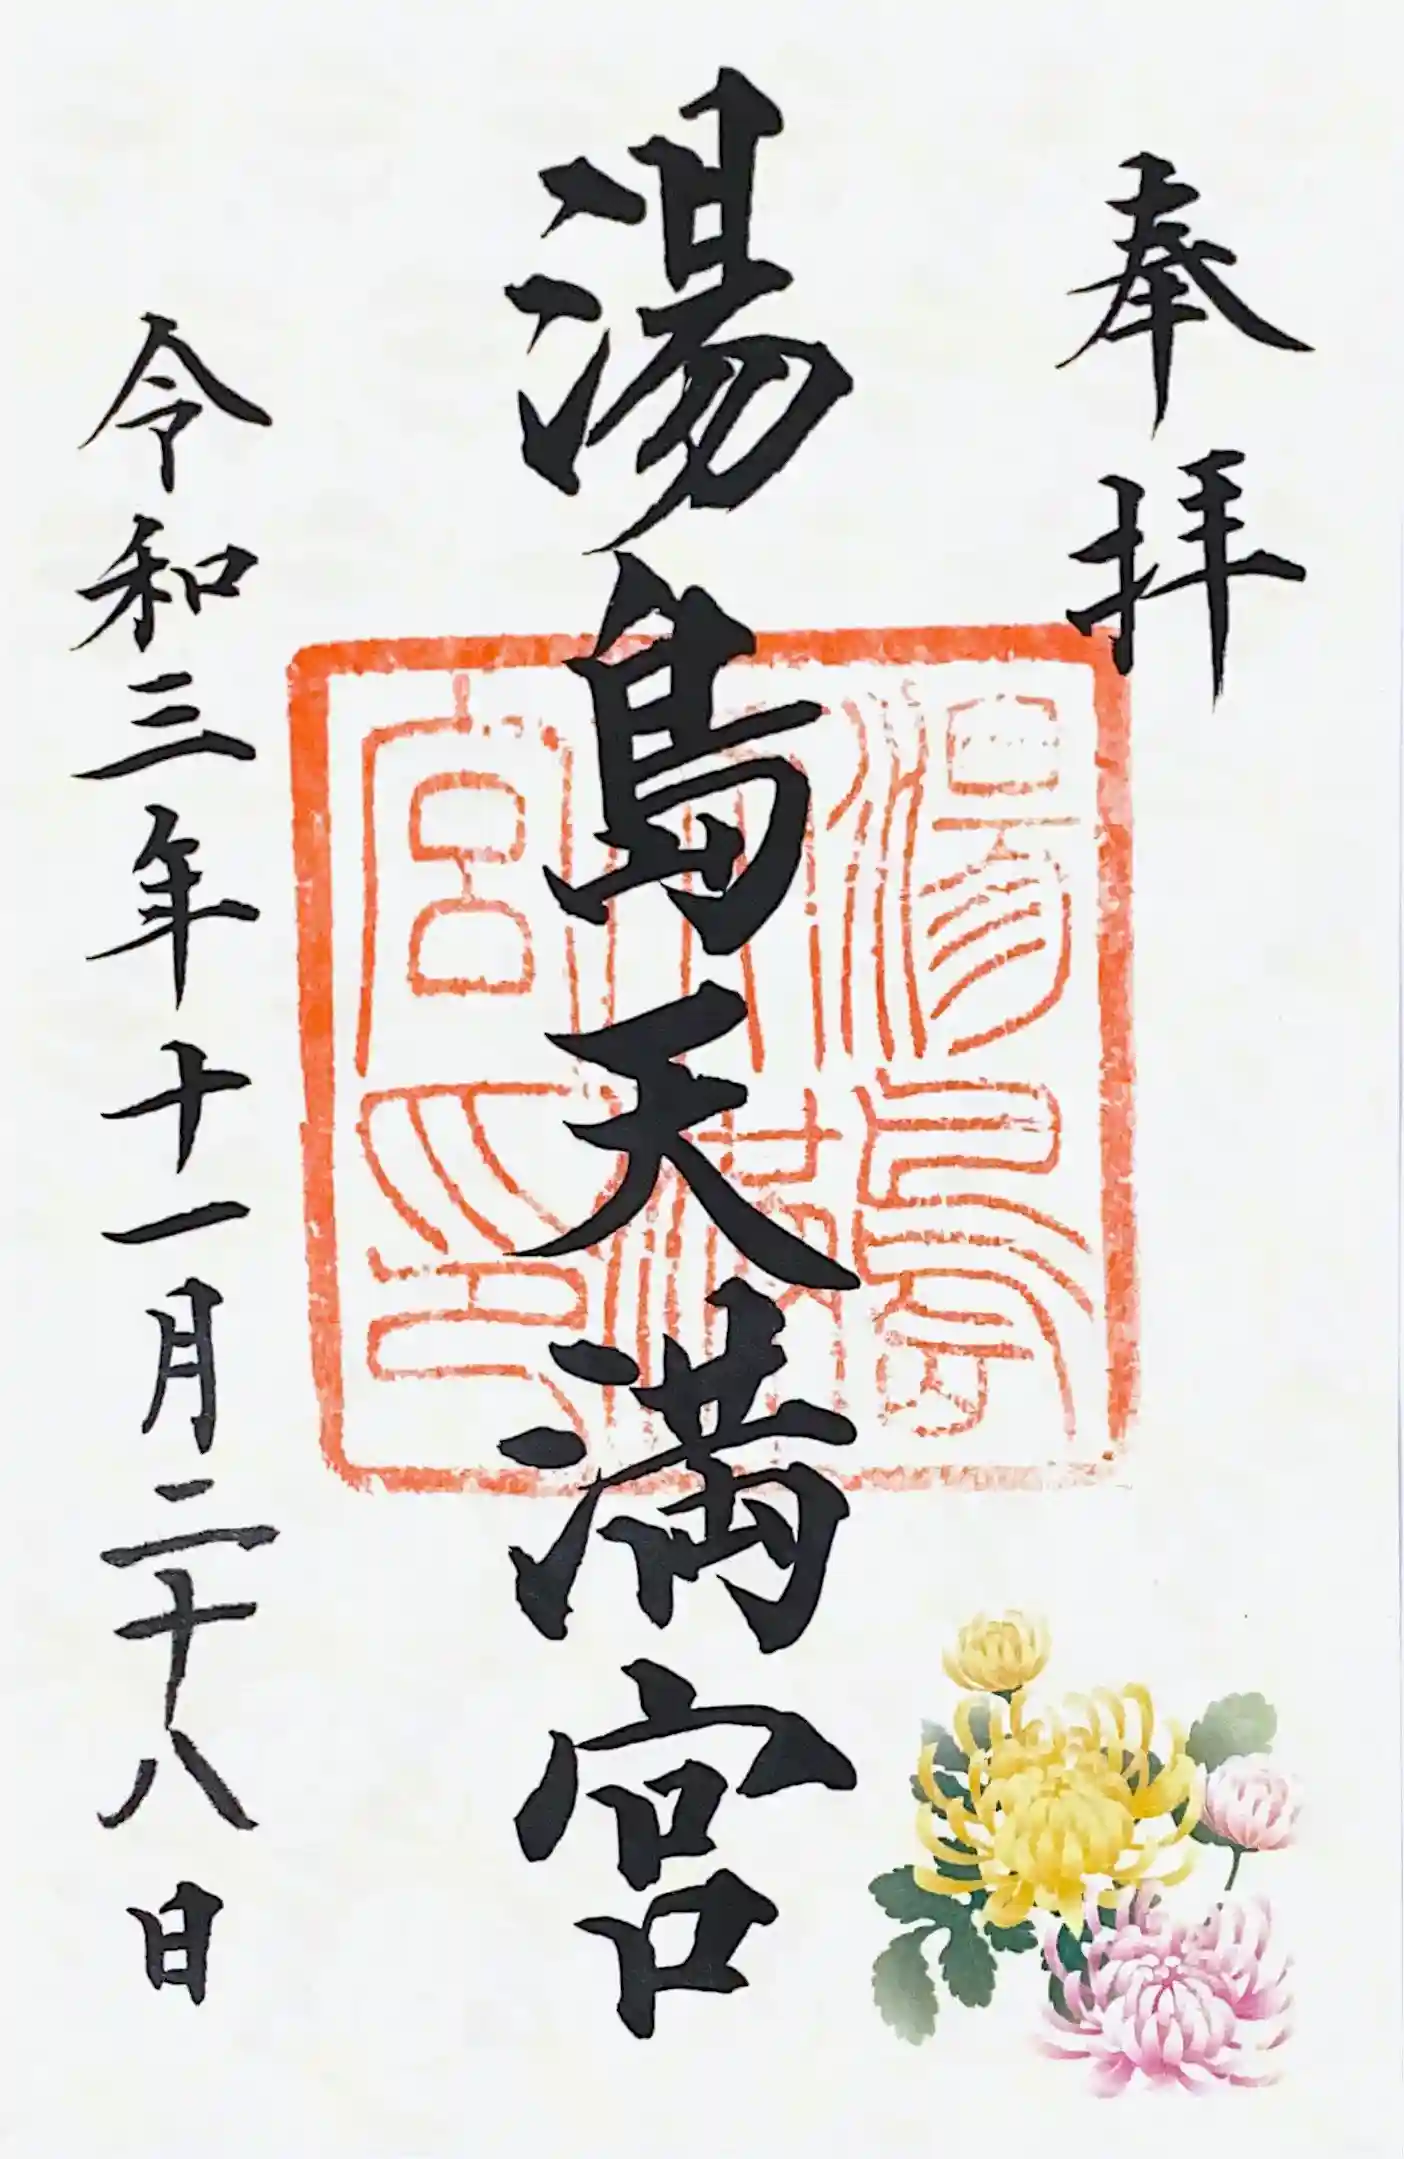 奉拝
湯島天満宮
湯島天満宮印
令和三年十一月二十八日